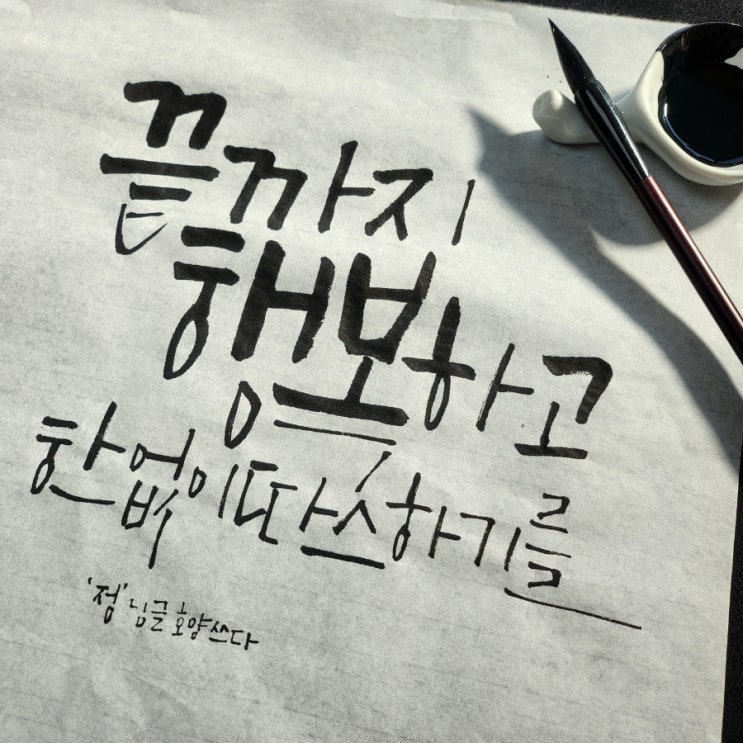 끝까지
행복하고
한없이 따스하기를
'정'님글 호양쓰다